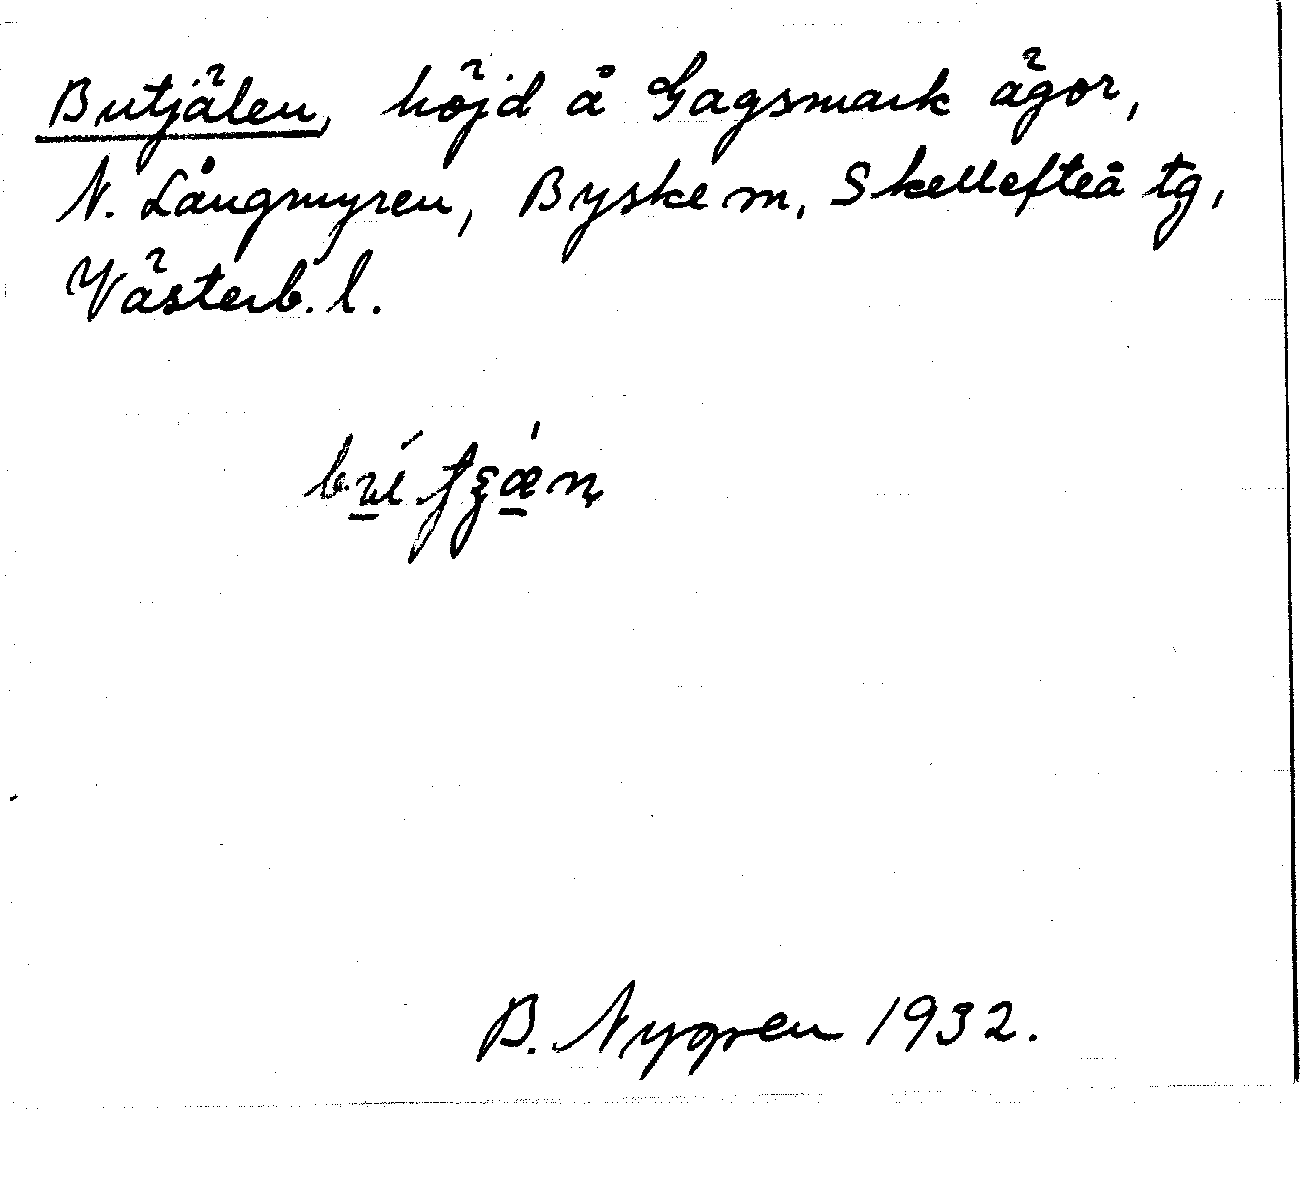 Butjälen, höjd å Gagsmark ägor,
N. Långmyren, Byske sn, Skellefteå tg,
Västerb. l.
B. Nygren 1932.